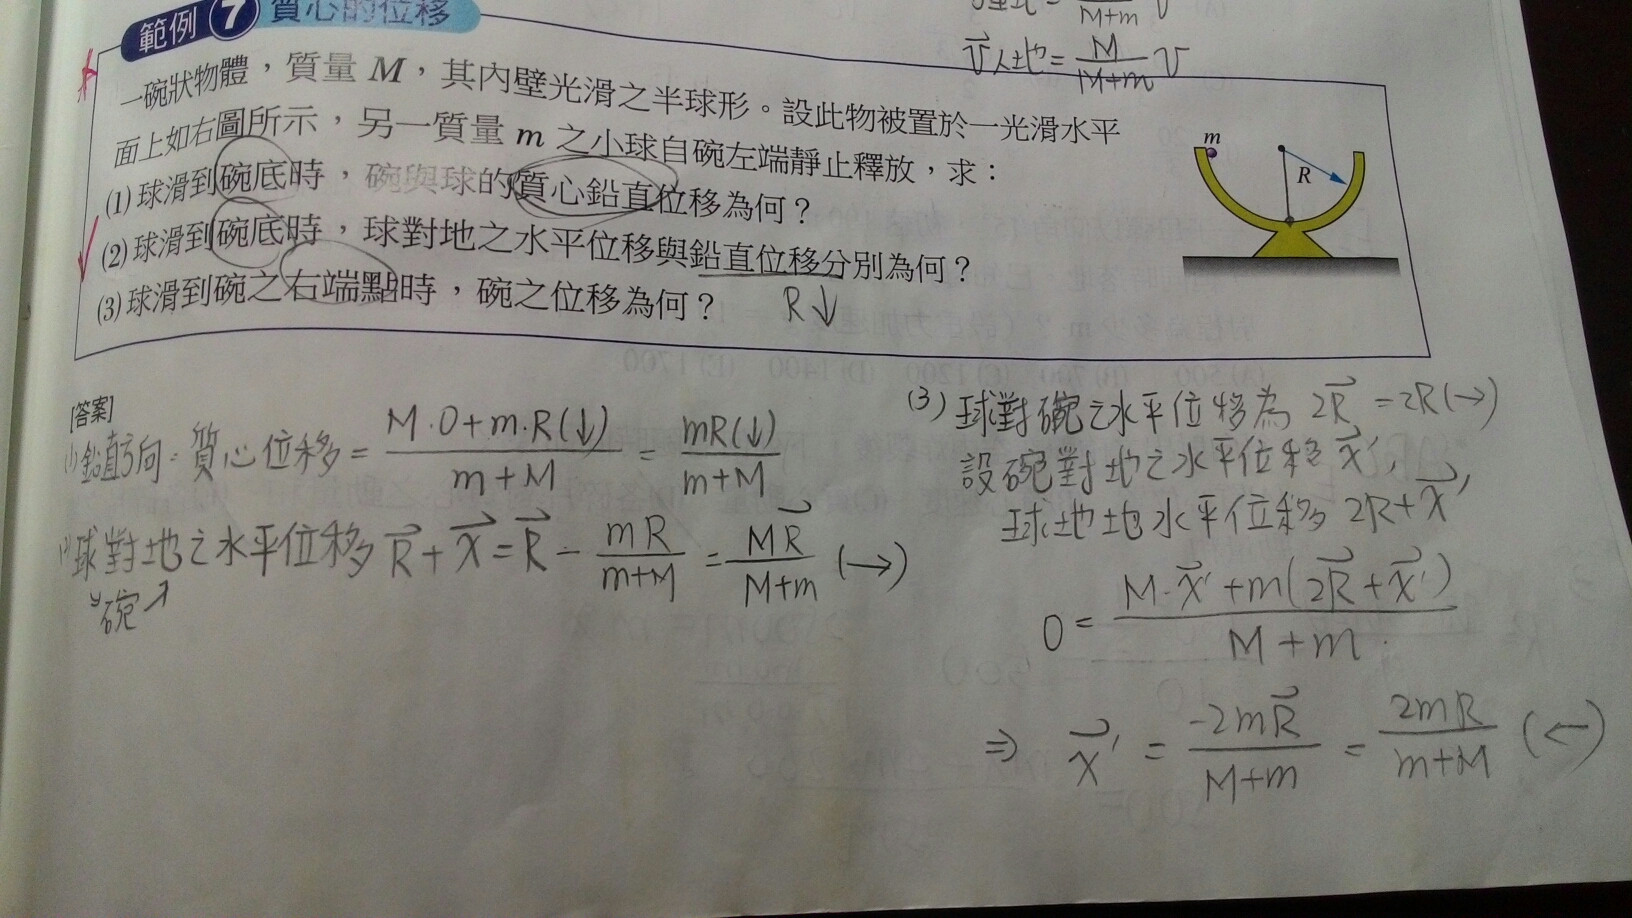 範例 7 質心的位移
M+m
V人地=M/M+m V
一碗狀物體，質量 M，其內壁光滑之半球形。設此物被置於一光滑水平
面上如右圖所示，另一質量 m 之小球自碗左端靜止釋放，求：
(1) 球滑到碗底時，碗與球的質心鉛直位移為何？
(2) 球滑到碗底時，球對地之水平位移與鉛直位移分別為何？
(3) 球滑到碗之右端點時，碗之位移為何？
R↓
m
R
[答案]
(1) 鉛直方向：質心位移 = M·0+m·R(↓)/m+M = mR(↓)/m+M
(2) 球對地之水平位移 R+x=R-mR/m+M=MR/M+m (→)
碗
(3) 球對碗之水平位移為 2R =2R(→)
設碗對地之水平位移 x',
球地地水平位移 2R+x'
0= M·x'+m(2R+x')/M+m
⇒ x' = -2mR/M+m = 2mR/m+M (←)